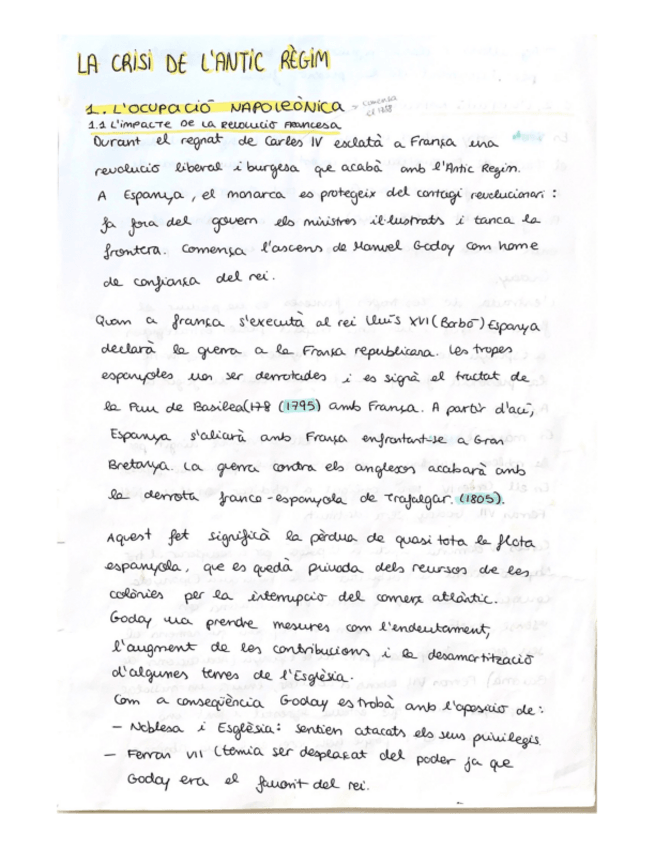 LA CRISI DE L'ANTIC RÈGIM
1. L'OCUPACIÓ NAPOLEÒNICA → comença
el 1808
1.1 L'IMPACTE DE LA REVOLUCIÓ FRANCESA
Durant el regnat de Carles IV esclatà a França una
revolució liberal i burgesa que acabà amb l'Antic Regim.
A Espanya, el monarca es protegeix del contagi revolucionari:
fa fora del govern els ministres il·lustrats i tanca la
frontera. Comença l'ascens de Manuel Godoy com home
de confiança del rei.
Quan a frança s'executà al rei Lluís XVI (Barbó) Espanya
declarà la guerra a la França republicana. Les tropes
espanyoles van ser derrotades i es signà el tractat de
la Pau de Basilea (178 (1795) amb França. A partir d'ací,
Espanya s'aliarà amb França enfrontant-se a Gran
Bretanya. La guerra contra els anglesos acabarà amb
la derrota franco-espanyola de Trafalgar. (1805).
Aquest fet significà la pèrdua de quasi tota la flota
espanyola, que es quedà privada dels recursos de les
colònies per la interrupció del comerç atlàntic.
Goday va prendre mesures com l'endeutament,
l'augment de les contribucions i la desamortització
d'algunes terres de l'Església.
Com a conseqüència Goday es trobà amb l'oposició de:
– Noblesa i Església: sentien atacats els seus privilegis
– Ferran VII (temia ser desplaçat del poder ja que
Goday era el favorit del rei.